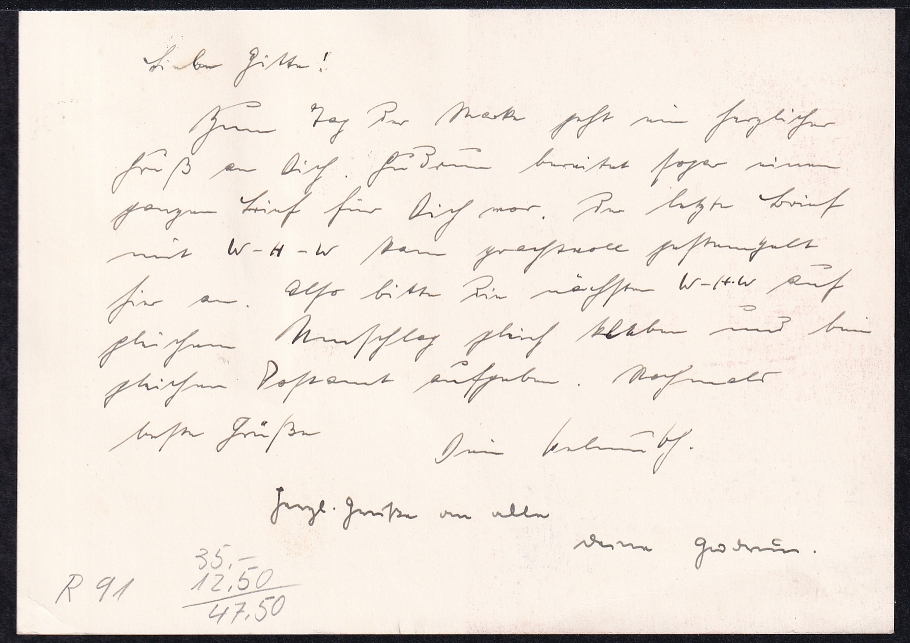 Liebe Gitte!
Zum Tag der Marke geht ein herzlicher
Gruß an Dich. Gudrun bereitet sogar einen
ganzen Brief für Dich vor. Der letzte Brief
mit W-H-W kam prachtvoll gestempelt
hier an. Also bitte die nächsten W-H-W auf
gleichem Umschlag gleich kleben und beim
gleichen Postamt aufgeben. Nochmals
beste Grüße
Dein
Herzl. Grüße an alle
Deine Gudrun.
R 91
35,-
12,50
47,50